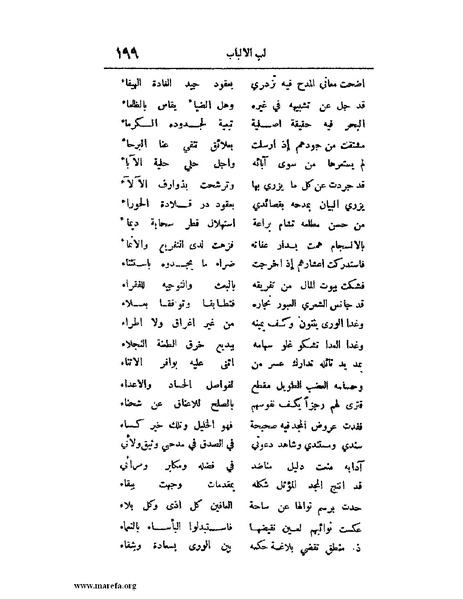 ١٩٩ لب الالباب
اضحت معاني المدح فيه تزدري بعقود جيد الغادة الهيفاء
قد جل عن تشبيهه في غيره وهل الضياء يقاس بالظلماء
البحر فيه حقيقة اصلية تبعية لجدوده الكرماء
مشتقت من جودهم إذ ارسلت بعلائق تنفي عنا البرحاء
لم يستعرها من سوى آبائه واجل حلي حلية الآباء
قد جردت عن كل ما يزري بها وترشحت بذوارف الآلاء
يزري البيان بمدحه بقصائدي بعقود در قلادة الحوراء
من حسن مطلعه تشام براعة استهلال قطر سحابة ديماء
بالانسجام همت يداه عفاته فزهت لدى التفريع والانعاء
فاستدركت اعشارهم إذ اخرجت ضراء ما يجدوه باستثناء
فشكت بيوت المال من تفريقه بالبعث والتوجيه للفقراء
قد جانس الشعرى العبور نجاره فتطابقا وتوافقا بعلاء
وغدا الورى يثنون وكف يمينه من غير اغراق ولا اطراء
وغدا العدا تشكو غلو سهامه ببديع خرق الطعنة النجلاء
بمديد نائله تدارك عسر من اثنى عليه بوافر الاثناء
وحسامه العضب الطويل مقطع لفواصل الحساد والاعداء
فترى لهم رجزاً يكف نفوسهم بالصلح للاعناق عن شحناء
فغدت عروض المجد فيه صحيحة فهو الخليل وتلك خير كساء
سندي ومستندي وشاهد دعوتي في الصدق في مدحي وثيق ولائي
آدابه منعت دليل مناضد في فضله ومكابر ومرائي
قد انتج المجد المؤثل شكله بمقدمات وجهت ببقاء
حدت برسم نوالها عن ساحة العافين كل اذى وكل بلاء
عكست نوائبهم لعين نقيضها فاستبدلوا البأساء بالنعماء
ذ. منطق تقضي بلاغة حكمه بين الورى بسعادة وشقاء
www.marefa.org